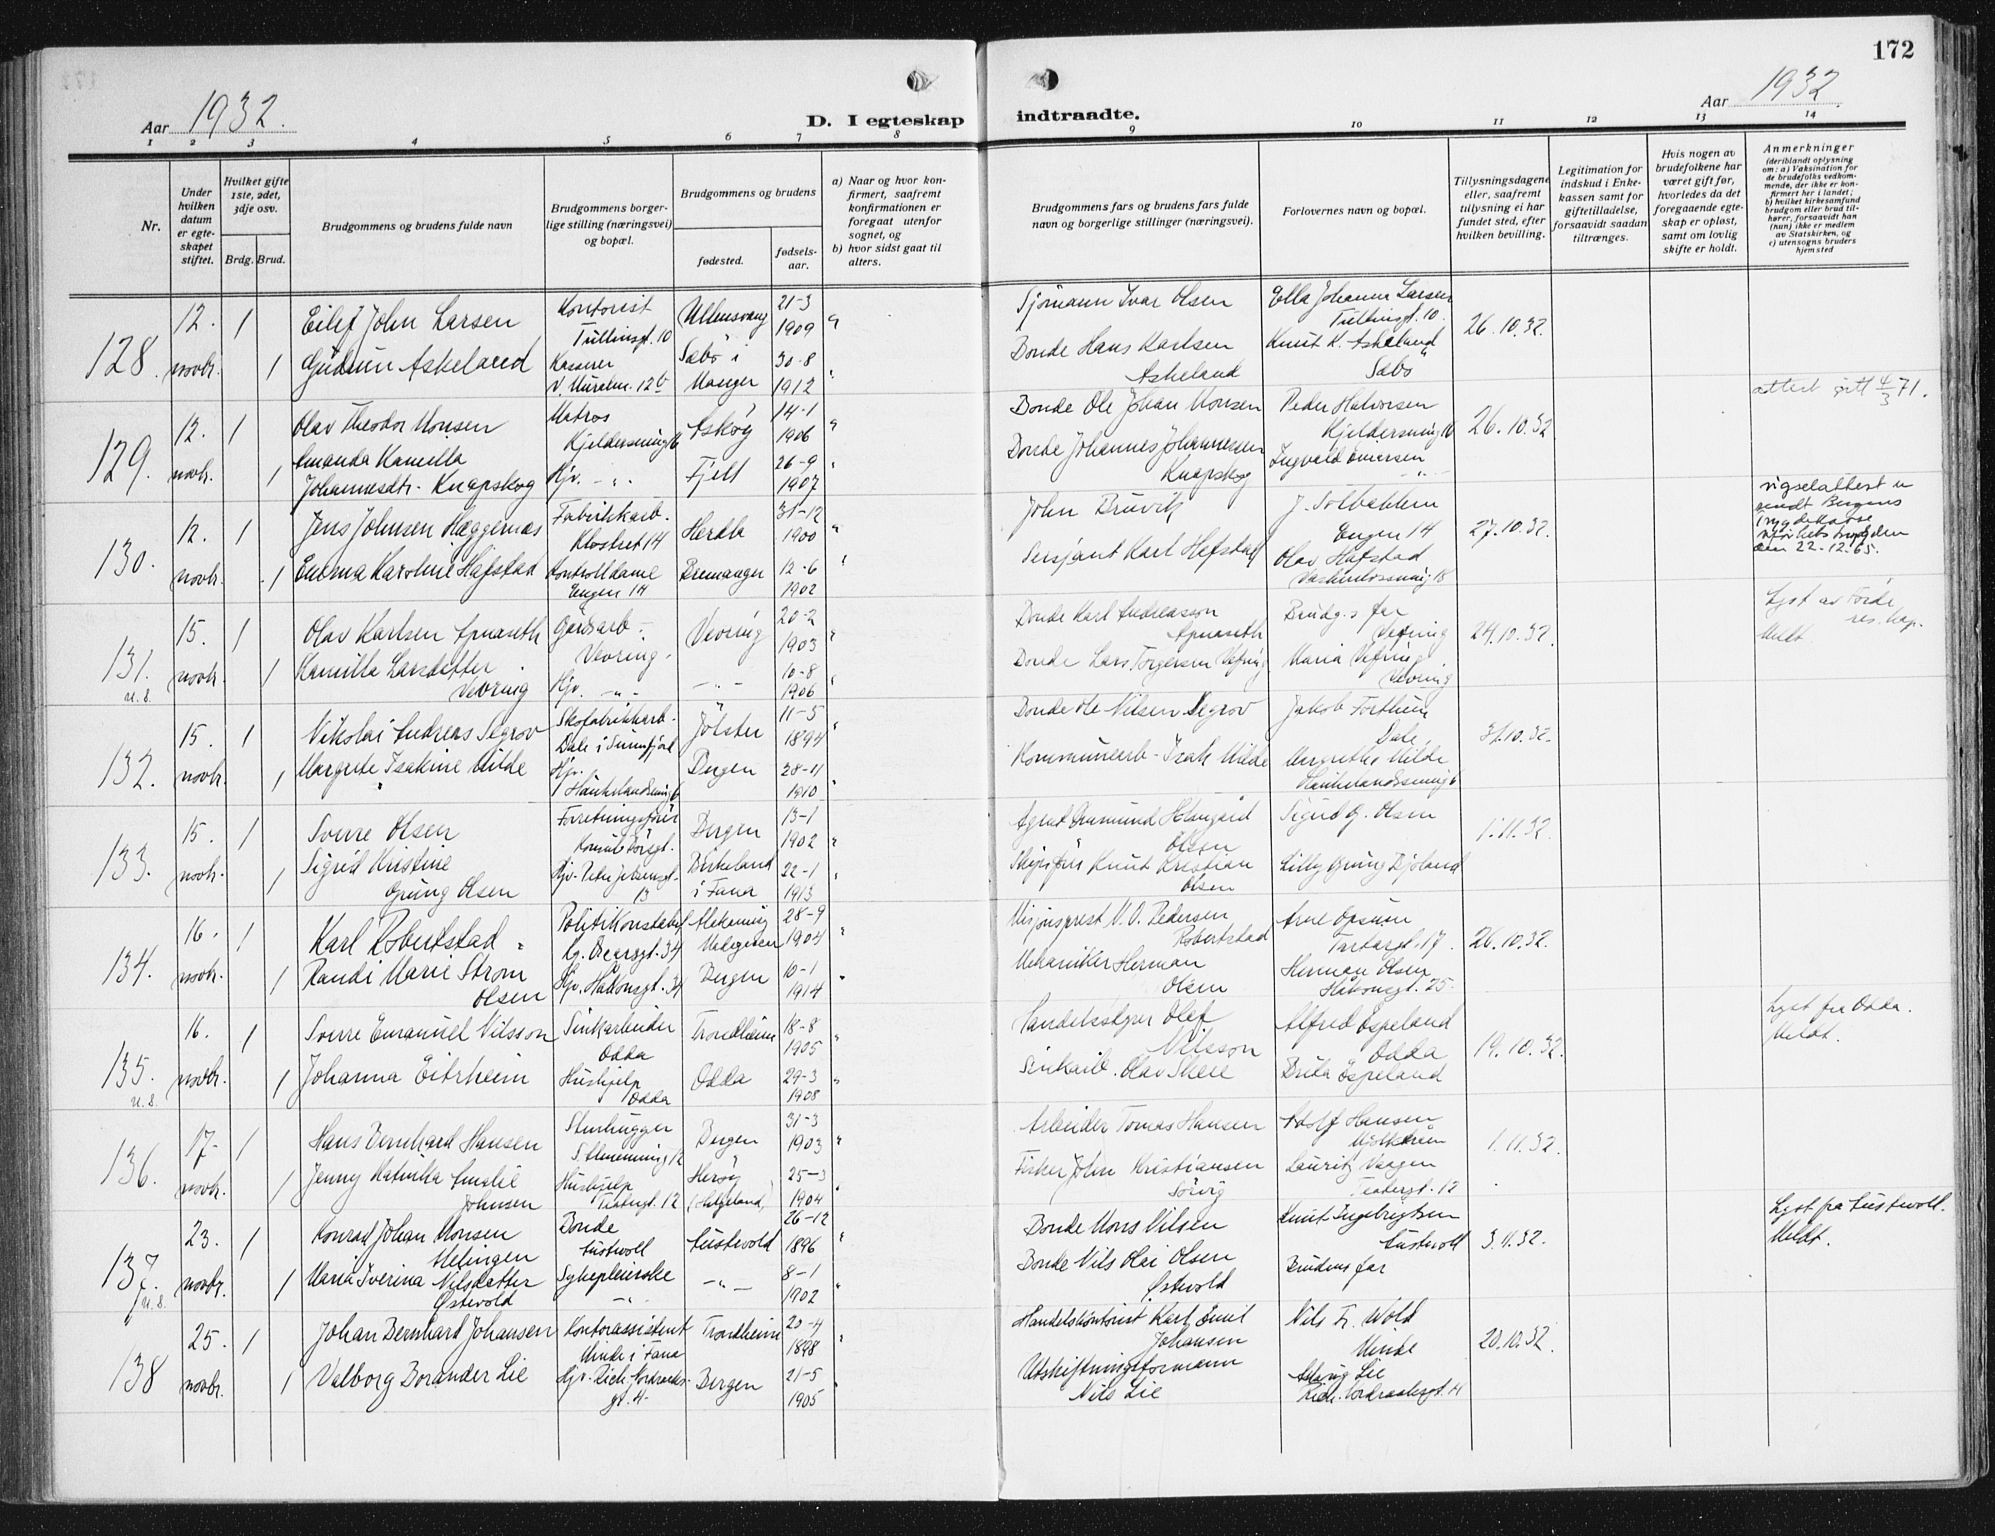 172
Aar 1932.
D. I egteskap indtraadte.
Aar 1932.
1 2 3 4 5 6 7 8 9 10 11 12 13 14
Nr.
Under hvilken datum er egteskapet stiftet.
Hvilket gifte 1ste, 2det, 3dje osv.
Brdg. Brud.
Brudgommens og brudens fulde navn
Brudgommens borgerlige stilling (næringsvei) og bopæl.
Brudgommens og brudens
fødested.
fødselsaar.
a) Naar og hvor konfirmert, saafremt konfirmationen er foregaat utenfor sognet, og
b) hvor sidst gaat til alters.
Brudgommens fars og brudens fars fulde navn og borgerlige stillinger (næringsvei).
Forlovernes navn og bopæl.
Tillysningsdagene eller, saafremt tillysning ei har fundet sted, efter hvilken bevilling.
Legitimation for indskud i Enkekassen samt for giftetilladelse, forsaavidt saadan tiltrænges.
Hvis nogen av brudefolkene har været gift før, hvorledes da det foregaaende egteskap er opløst, samt om lovlig skifte er holdt.
Anmerkninger
(deriblandt oplysning om: a) Vaksination for de brudefolks vedkommende, der ikke er konfirmert her i landet; b) hvilket kirkesamfund brudgom eller brud tilhører, forsaavidt han (hun) ikke er medlem av Statskirken, og c) utensogns bruders hjemsted
128. 12. novbr. 1 Eilif John Larsen Kontorist Tullinsgt. 10 Ullensvang 21-3 1909 Sjömann Ivar Olsen Ella Johanne Larsen Tullinsgt. 10. 26.10.32.
1 Gudrun Askeland Kasserer 12b Sæbö i Manger 30-8 1912 Bonde Hans Karlsen Askeland Knut K. Askeland Sæbö
129. 12. novbr. 1 Olav Theodor Monsen Matros Askøy 14-1 1906 Bonde Ole Johan Monsen Peder Halvorsen 26.10.32 attest 4/3 71.
1 Amanda Kamilla Johannesdtr. Knapskog Hjv. -"- Fjell 26-9 1907 Bonde Johannes Johannessen Knapskog Ingvald -"-
130. 12. novbr. 1 Jens Johnsen Hæggernæs Fabrikkarb. Klostret 14 Herdla 31-12 1900 John J. Solbakken Engen 14 27.10.32. vigselattest sendt Bergens Trygdekasse den 22-12.65.
1 Emma Karoline Hafstad Kontrolldame Engen 14 Bremanger 12-6 1902 Sersjant Karl Hafstad Olav Hafstad
131. u.s. 15. novbr. 1 Olav Karlsen Gårdsarb. Vevring. Vevring 20-2 1903 Bonde Karl Andreasson Brudg.s far Vefring 24.10.32. Lyst av Förde res. kap. Meldt.
1 Kamilla Larsdatter Vevring Hjv. -"- -"- 10-8 1906 Bonde Lars Torgersen Vefring Maria Vefring Vevring
132. 15. novbr. 1 Nikolai Andreas Segrov Skofabrikkarb. Dale i Sunnfjord Jölster 11-5 1894 Bonde Ole Nilsen Segrov Jakob Dale 31.10.32.
1 Margrete Isakine Milde Hjv. Haukelandsveien 6 Bergen 28-11 1910 Kommunearb. Isak Milde Margrethe Milde Haukelandsveien 6
133. 15. novbr. 1 Sverre Olsen Forretningsförer Bergen 13-1 1902 Agent Olsen Sigurd G. Olsen 1.11.32.
1 Sigrid Kristine Grung Olsen Hjv. 13 Birkeland i Fana 22-1 1913 Knut Kristian Olsen Lilly Grung
134. 16. novbr. 1 Karl Robertstad Politikonstabel 34 28-9 1904 Misjonsprest Pedersen Robertstad Arne Tartargt. 17. 26.10.32.
1 Randi Marie Strøm Olsen Hjv. Håkonsgt. 34 Bergen 10-1 1914 Mekaniker Herman Olsen Herman Olsen Håkonsgt. 25.
135. u.s. 16. novbr. 1 Sverre Emanuel Nilsson Sinkarbeider Odda Trondheim 18-8 1905 Handelsstyrer Olof Nilsson Alfred Espeland Odda 19.10.32. Lyst fra Odda. Meldt.
1 Johanna Eitrheim Hushjelp Odda Odda 29-3 1908 Sinkarb. Olav Brita Espeland
136. 17- novbr. 1 Hans Bernhard Hansen Stenhugger Bergen 31-3 1903 Arbeider Tomas Hansen Adolf Hansen 1.11.32.
1 Jenny Katinka Amalie Johansen Hushjelp Teatergt. 12 Herøy (Helgeland) 25-3 1904 Fisker John Kristiansen Sörvig Lauritz Vaagen Teatergt. 12
137. u.s. 23. novbr. 1 Konrad Johan Monsen Melingen Bonde Austevoll Austevold 26-12 1896 Bonde Mons Nilsen Knut Ingebrigtsen Austevoll 3.11.32. Lyst på Austevoll. Meldt.
1 Maria Iverina Nilsdatter Østevold Sykepleierske -"- -"- 8-1 1902 Bonde Nils Olai Olsen Østevold Brudens far
138 25. novbr. 1 Johan Bernhard Johansen Kontorassistent Minde i Fana Trondheim 20-4 1898 Handelskontorist Karl Emil Johansen Nils Fr. Wold Minde 20.10.32.
1 Valborg Borander Lie Hjv. Rich. Nordraaksgt. 4. Bergen 21-5 1905 Utskiftningsformann Nils Lie Aslaug Lie Rich. Nordraaksgt. 4